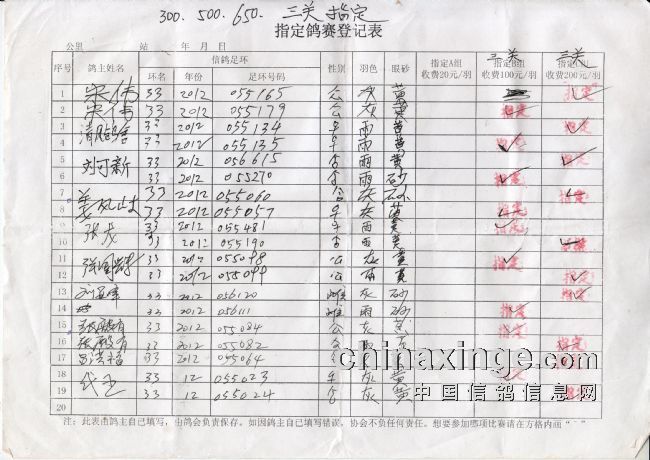 300. 500. 650. 三关指定
指定鸽赛登记表
公里 站 年 月 日
序号 鸽主姓名 信鸽足环 性别 羽色 眼砂 指定A组 三关 三关
环名 年份 足环号码 收费20元/羽 收费100元/羽 收费200元/羽
1 宋伟 33 2012 055165 灰 黄 指定
2 宋伟 33 2012 055179 灰 黄 指定
3 33 2012 055134 雨 黄 指定
4 2012 055135 雨 黄 指定
5 刘可新 33 2012 056615 雨 黄 指定
6 33 2012 055270 雨 砂 指定
7 33 2012 055060 灰 砂 指定
8 33 2012 055057 灰 黄 指定
9 张友 33 2012 055481 雨 黄 指定
10 33 2012 055190 雨 黄 指定
11 33 2012 055098 公 灰 黄 指定
12 33 2012 055099 公 雨 黄 指定
13 33 2012 056120 雌 灰 砂 指定
14 33 2012 056111 雌 雨 砂 指定
15 33 2012 055084 公 灰 黄 指定
16 33 2012 055082 雨 指定
17 33 2012 055064 指定
18 代玉 33 2012 055023 灰 黄 指定
19 33 12 055024 灰 黄 指定
20
chinaxinge.com
中国信鸽信息网
注：此表由鸽主自己填写，由鸽会负责保存。如因鸽主自己填写错误，协会不负任何责任。想要参加哪项比赛请在方格内画"`"